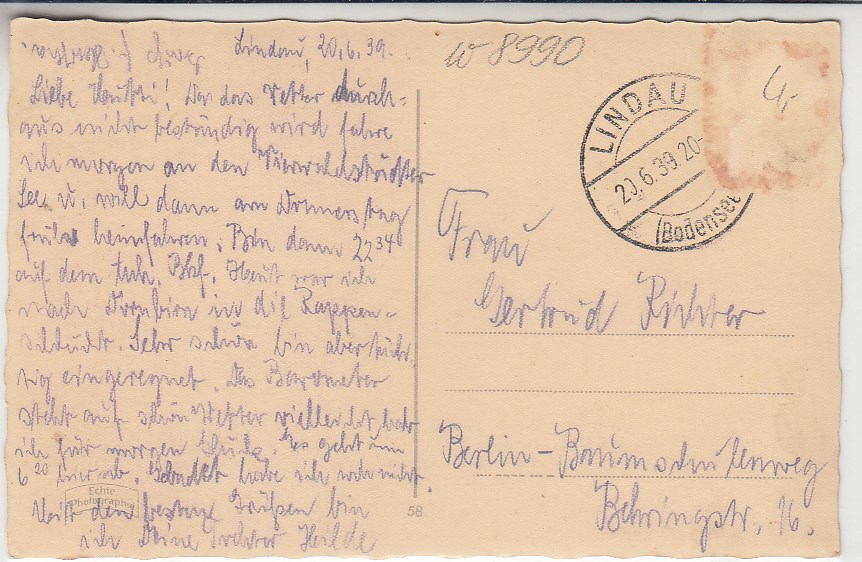 Lindau, 20.6.39.
Liebe Mutti! Da das Wetter durch=
aus nicht beständig wird fahre
ich morgen an den Vierwaldstädter
See u. will dann am Donnerstag
früh heimfahren. Bin dann 22 34
auf dem Bhf. Heut war ich
nach Dornbirn in die Rappen=
schlucht. Sehr schön bin aber tüch=
tig eingeregnet. Das Barometer
steht auf schön Wetter vielleicht hab
ich für morgen Glück. Es geht um
6 20 hier ab. habe ich noch nicht.
Mit den besten Grüßen bin
ich Deine Tochter Hilde
Echte
Photographie
58
W 8990
4,-
LINDAU
20.6.39.20-
(Bodensee)
Frau
Gertrud Richter
Berlin-Baumschulenweg
Behringstr. 16.